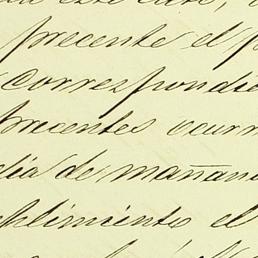 precente el p
correspondie
precentes ocurr
dia de mañana
plimiento el